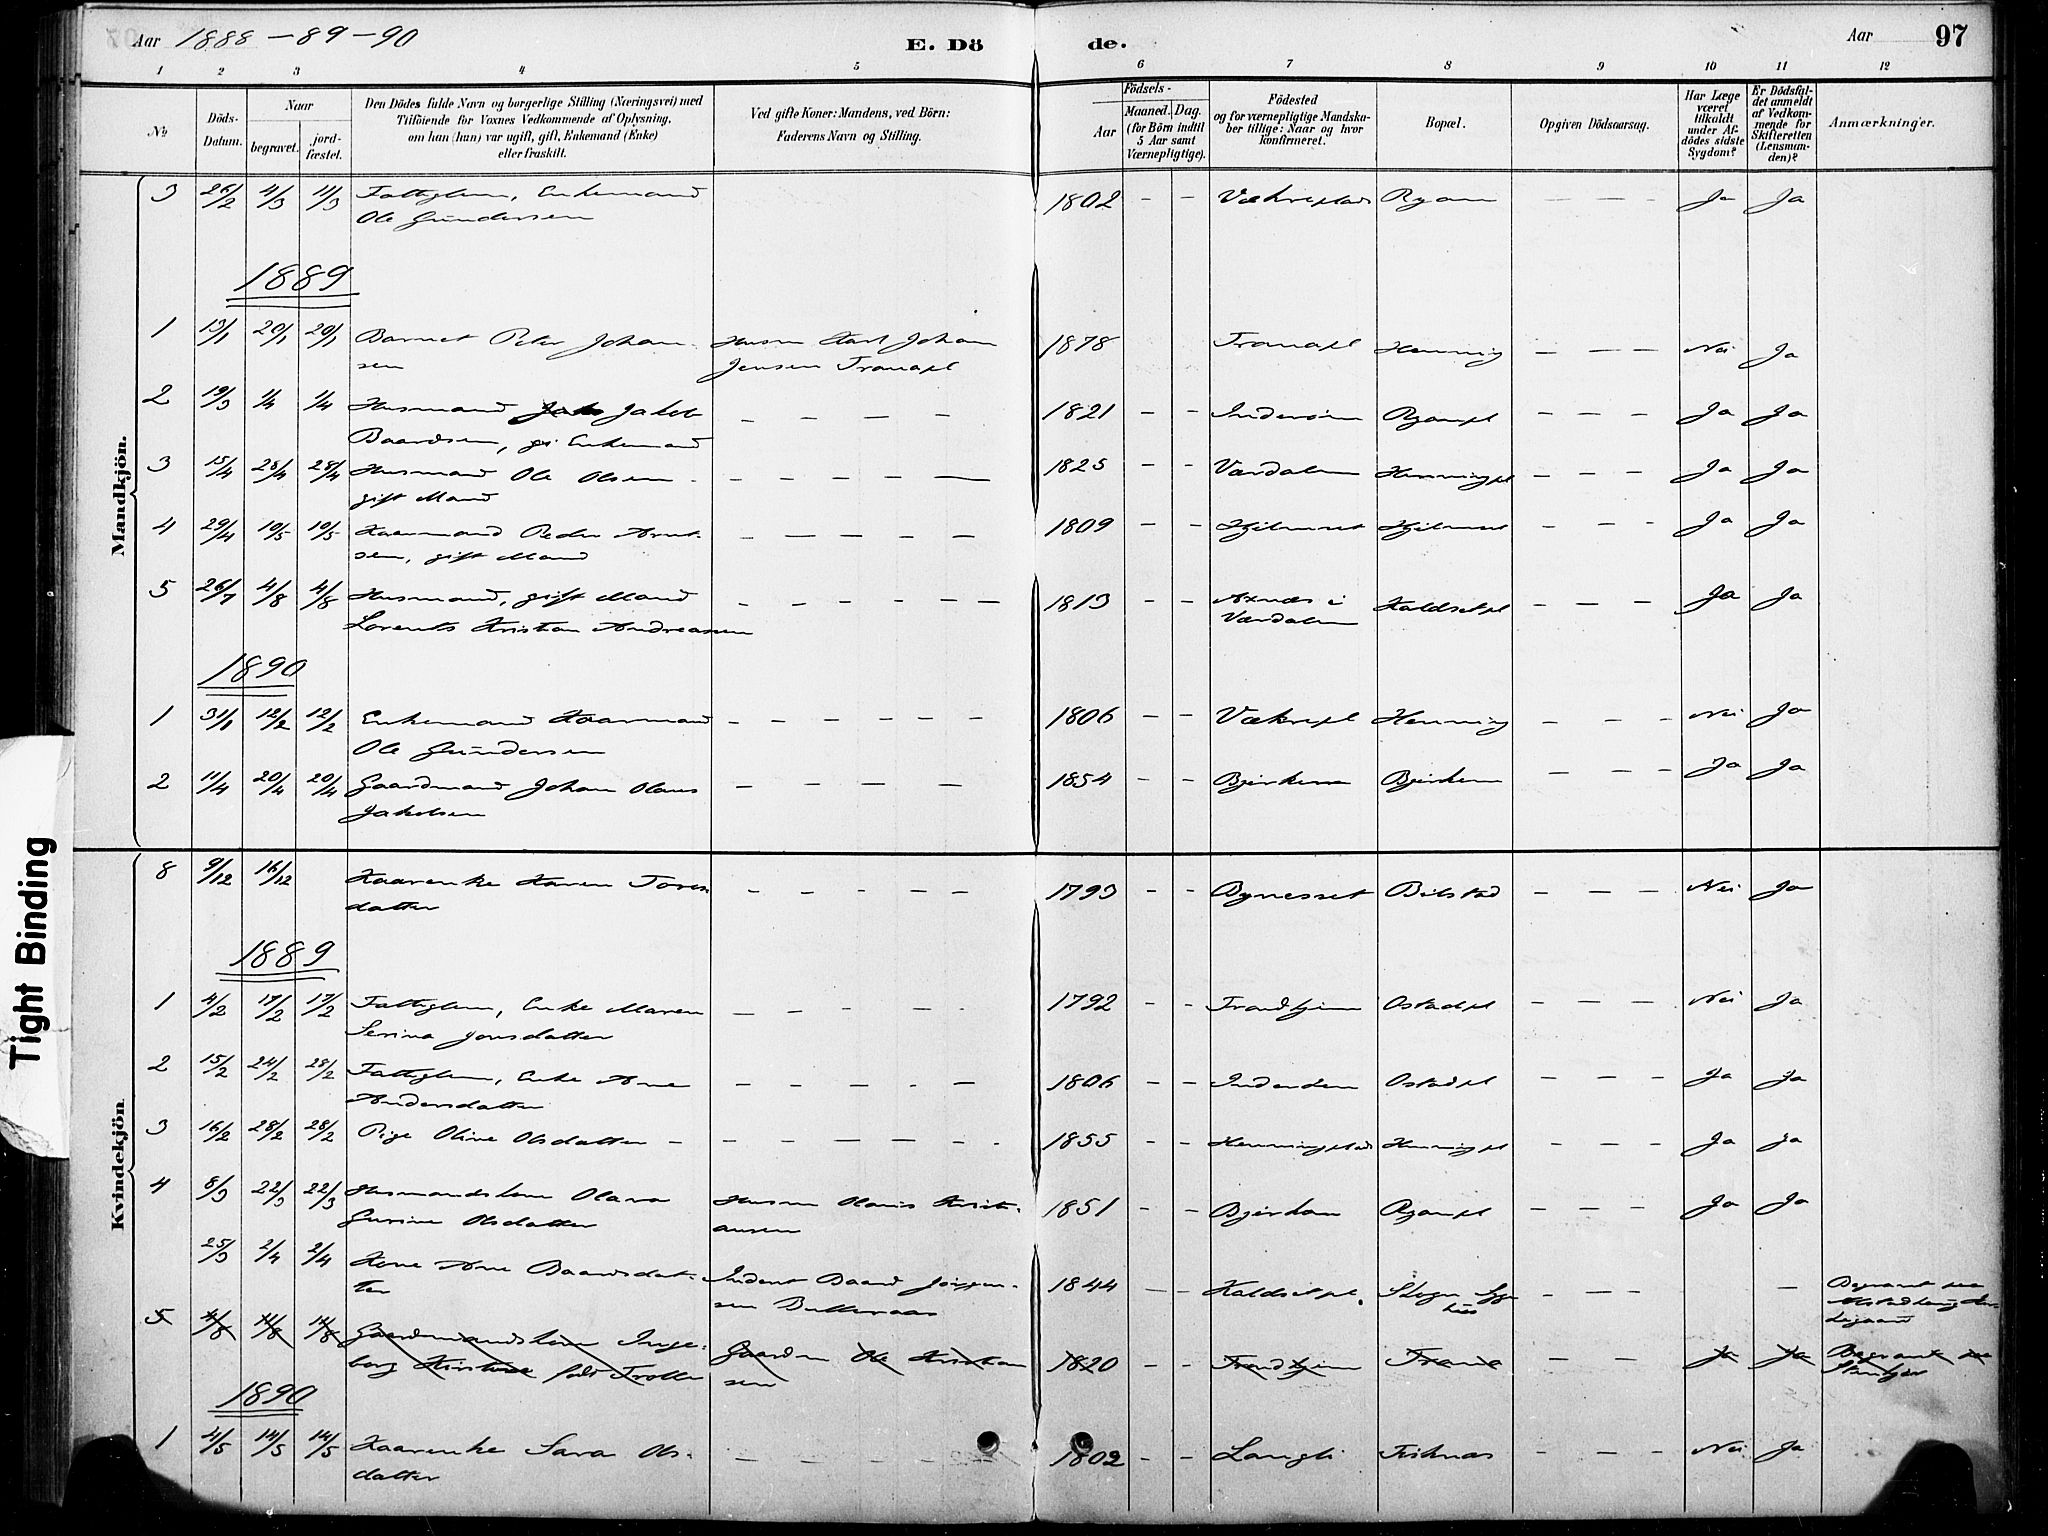 Aar 1888-89-90 E. Dö de. Aar 97
1 2 3 4 5 6 7 8 9 10 11 12
№
Döds-
Datum.
Naar
begravet.
jord-
fæstet.
Den Dödes fulde Navn og borgerlige Stilling (Næringsvei) med
Tilföiende for Voxnes Vedkommende af Oplysning,
om han (hun) var ugift, gift, Enkemand (Enke)
eller fraskilt.
Ved gifte Koner: Mandens, ved Börn:
Faderens Navn og Stilling.
Födsels-
Aar
Maaned. Dag.
(for Börn indtil
5 Aar samt
Værnepligtige).
Födested
og for værnepligtige Mandska-
ber tillige: Naar og hvor
konfirmeret.
Bopæl.
Opgiven Dödsaarsag.
Har Læge
været
tilkaldt
under Af-
dödes sidste
Sygdom?
Er Dödsfal-
det anmeldt
af Vedkom-
mende for
Skifteretten
(Lensman-
den)?
Anmærkninger.
Mandkjön.
3 26/2 4/3 11/3 Fattiglem, Enkemand 1802 - - Ryan — — — Ja Ja
Ole Gundersen
1889
1 13/1 20/1 20/1 Barnet Peter Johan- Husm Karl Johan 1878 Tranapl Henning — — — Nei Ja
sen Jensen Tranapl
2 19/3 1/4 1/4 Husmand Jakob — — — — 1821 - - Inderöen Ryanpl — — — Ja Ja
Baardsen, Enkemand
3 15/4 28/4 28/4 Husmand Ole Olsen — — — — — 1825 - - Værdalen Henningpl — — — Ja Ja
gift Mand
4 29/4 10/5 10/5 Kaarmand Peder Arnt- — — — — — 1809 - - Hjelmset Hjelmset — — — Ja Ja
sen, gift Mand
5 26/7 4/8 4/8 Husmand, gift Mand — — — — — — 1813 - - i Kaldsetpl — — — Ja Ja
Lorents Kristian Andreassen Værdalen
1890
1 31/1 12/2 12/2 Enkemand Kaarmand — — — — — — 1806 - - Henning — — — Nei Ja
Ole Gundersen
2 11/4 20/4 20/4 Gaardmand Johan Olaus — — — — 1854 - - Bjerkem Bjerkem — — — Ja Ja
Jakobsen
Kvindekjön
8 9/12 16/12 Kaarenke Karen Tores- — — — — — 1793 - - Bynesset Bilstad — — — Nei Ja
datter
1889
1 4/2 17/2 17/2 Fattiglem, Enke Maren — — — — 1792 - - Trondhjem Ostadpl — — — Nei Ja
Serina Jonsdatter
2 15/2 24/2 28/2 Fattiglem, Enke Ane — — — — — 1806 - - Ostadpl — — — Ja Ja
Andersdatter
3 16/2 28/2 28/2 Pige Oline Olsdatter — — — — — — 1855 - - Henningpl — — — Ja Ja
4 8/3 22/3 22/3 Husmandskone Olava Husm Olaus Krist- 1851 - - Ryanpl — — — Ja Ja
Gurine Olsdatter ansen
25/3 2/4 2/4 Kone Ane Baardsdat- Baard Jörgen- 1844 — — Kaldsetpl. — — — — Begravet paa
ter sen
5 11/8 14/8 14/8 Gaardmandskone Inge- Gaardm Ole Kristian 1820 - - Trondhjem Trana — — Ja Ja Begravet paa
borg Kirstine födt Trolle sen Stenkjer
1890
1 4/5 14/5 14/5 Kaarenke Sara Ols- — — — — — 1802 - - Langli — — — Nei Ja
datter
Tight Binding